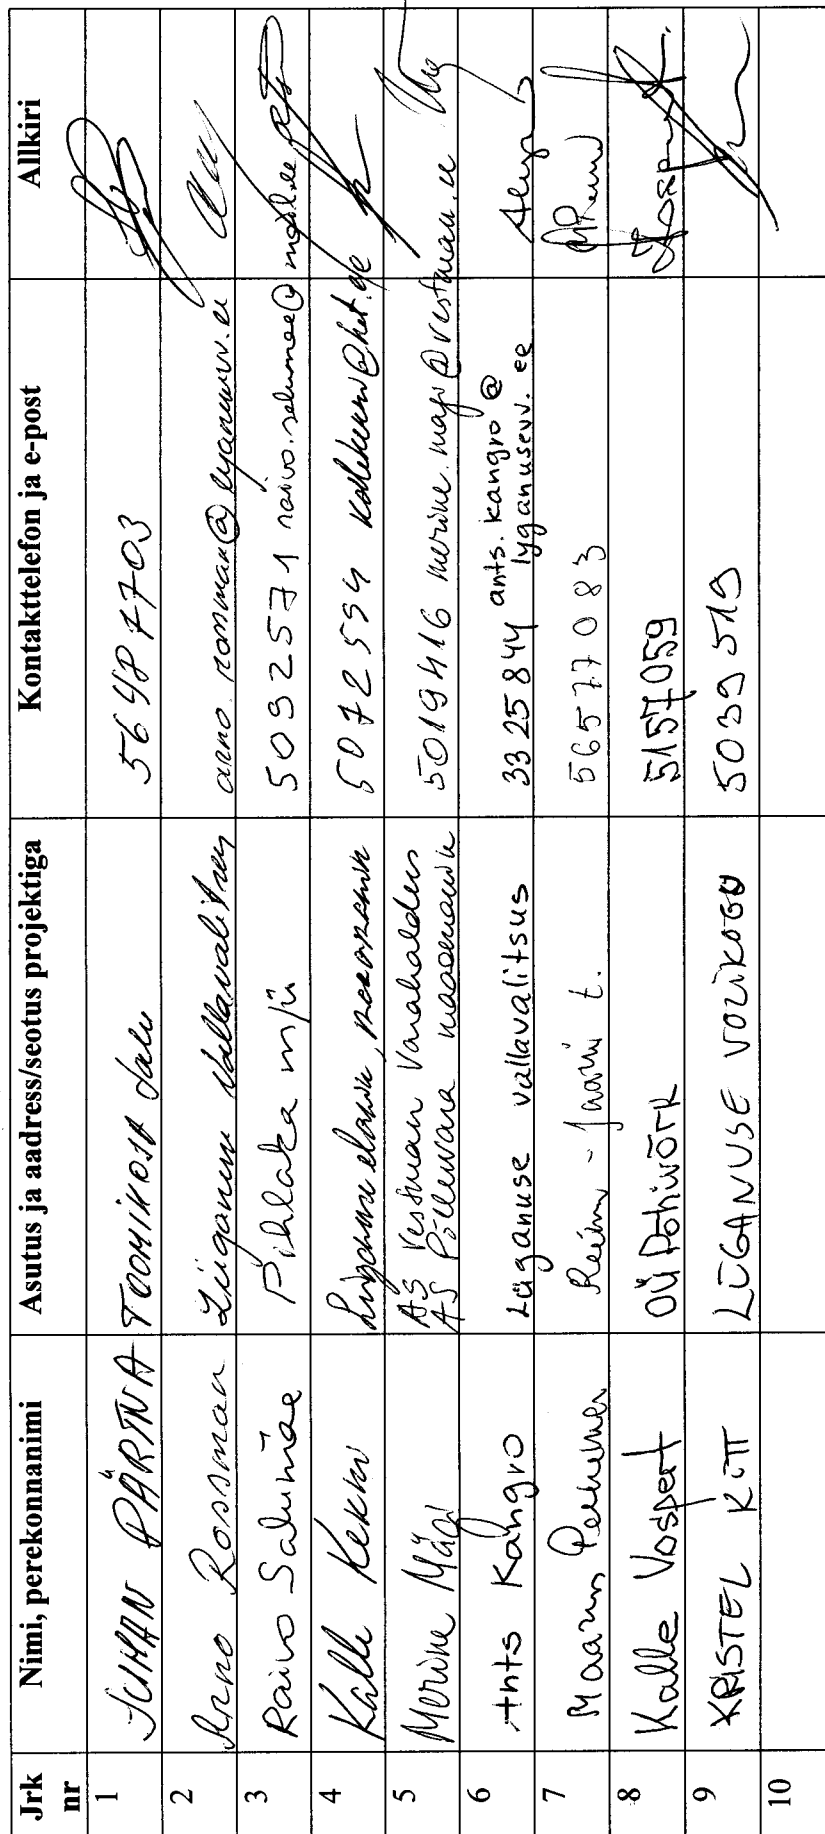 Jrk nr Nimi, perekonnanimi Asutus ja aadress/seotus projektiga Kontakttelefon ja e-post Allkiri
1 JUHAN PÄRTNA TOOMIKOJA talu 56487703
2 Arno Rossman Lüganuse Vallavalitsus arno.rossman@lyganusevv.ee
3 Raivo Salumäe Pihlaka mjü 5092571 raivo.salumae@mail.ee
4 Kalle Kekki Lüganuse elanik, 5072554 kallekekki@hot.ee
5 Merine Mägi AS Vestman Varahaldus 5019416 merine.magi@vestman.ee
AS Põllevara maaomanik
6 Ants Kangro Lüganuse vallavalitsus 3325844 ants.kangro@
lyganusevv.ee
7 56577083
8 Kalle Vospert OÜ Põhivõrk 5157059
9 KRISTEL KITT LÜGANUSE VOLIKOGU 5039519
10